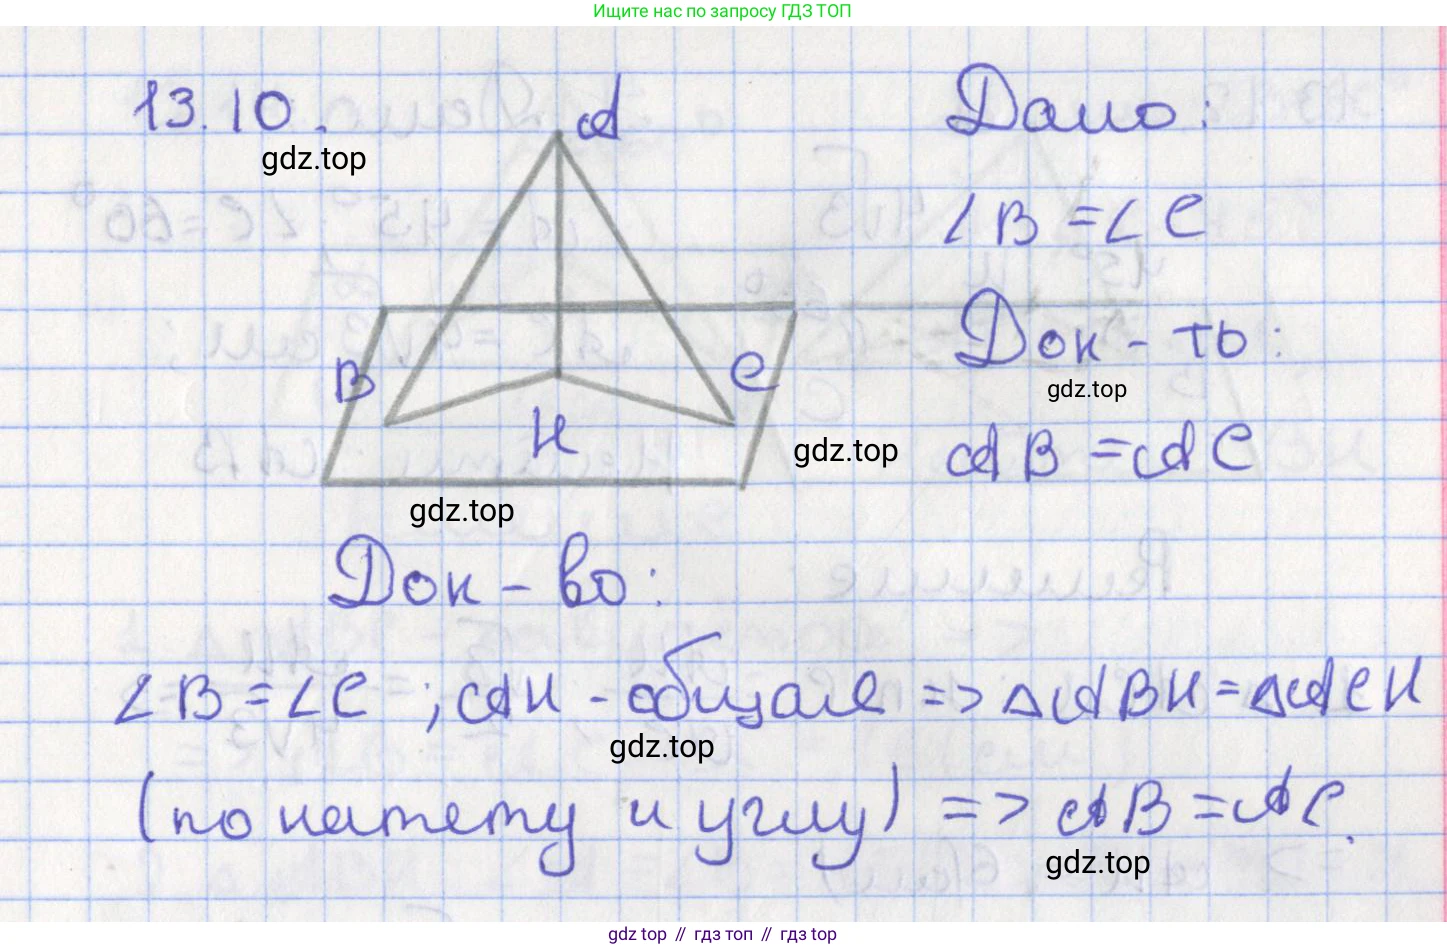 Ищите нас по запросу ГДЗ ТОП
13.10.
gdz.top
A
B
C
H
gdz.top
gdz.top
Дано:
∠B = ∠C
Док-ть:
gdz.top
AB = AC
Док-во:
∠B = ∠C ; AH - общая => △ABH = △ACH
gdz.top
(по катету и углу) => AB = AC.
gdz.top
gdz top // гдз топ // гдз top